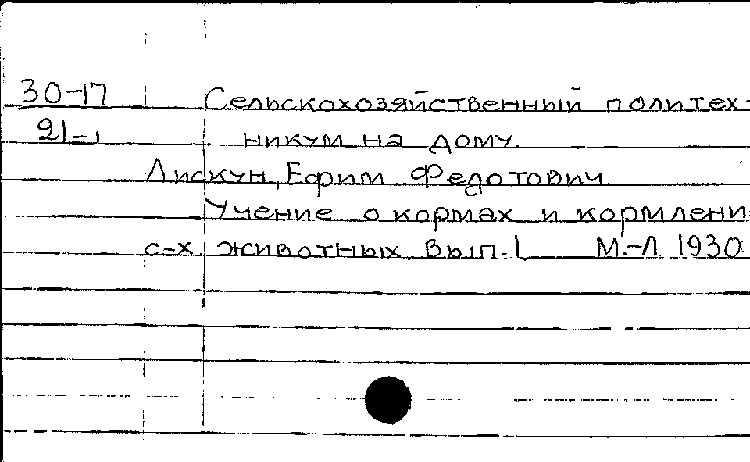 30-17 Сельскохозяйственный политех-
21-1 никум на дому.
Лискун, Ефим Федотович
Учение о кормах и кормлени
с-х животных Вып. 1 М.-Л 1930